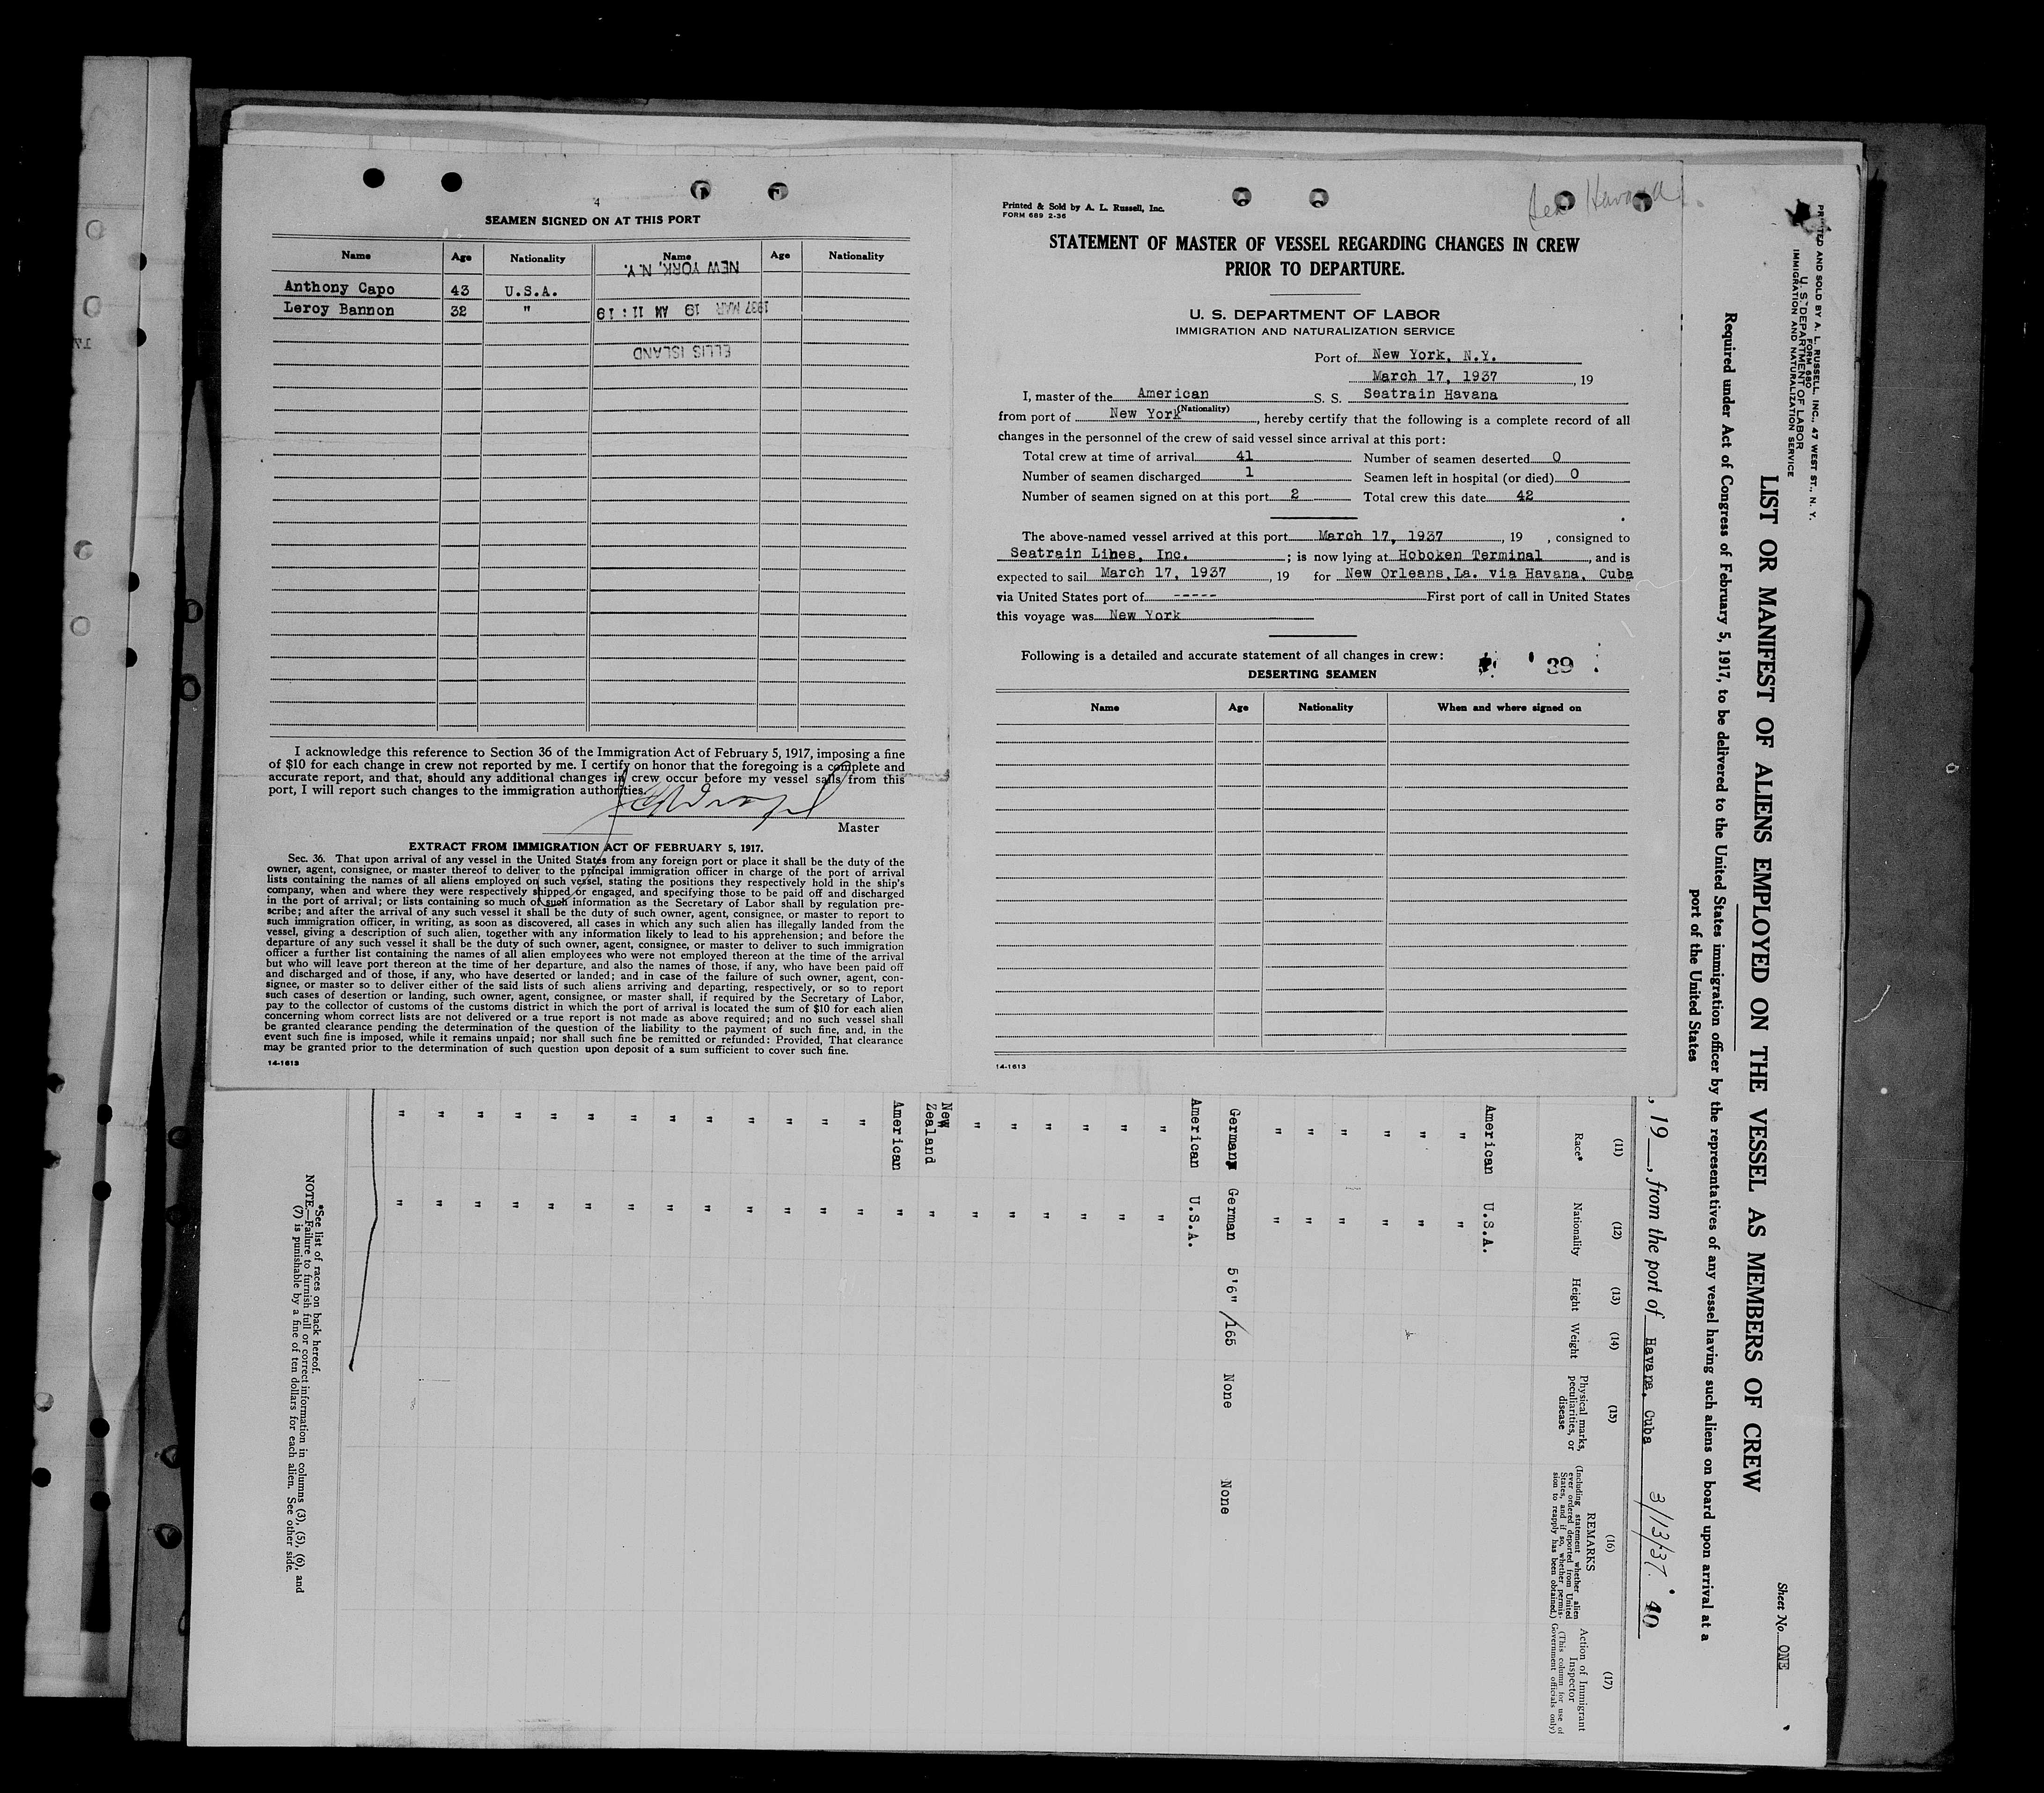 4
SEAMEN SIGNED ON AT THIS PORT
Name Age Nationality Name Age Nationality
NEW YORK, N.Y.
Anthony Capo 43 U.S.A.
Leroy Bannon 32 "
1937 MAR 19 AM 11:19
ELLIS ISLAND
I acknowledge this reference to Section 36 of the Immigration Act of February 5, 1917, imposing a fine
of $10 for each change in crew not reported by me. I certify on honor that the foregoing is a complete and
accurate report, and that, should any additional changes in crew occur before my vessel sails from this
port, I will report such changes to the immigration authorities.
Master
EXTRACT FROM IMMIGRATION ACT OF FEBRUARY 5, 1917.
Sec. 36. That upon arrival of any vessel in the United States from any foreign port or place it shall be the duty of the
owner, agent, consignee, or master thereof to deliver to the principal immigration officer in charge of the port of arrival
lists containing the names of all aliens employed on such vessel, stating the positions they respectively hold in the ship's
company, when and where they were respectively shipped or engaged, and specifying those to be paid off and discharged
in the port of arrival; or lists containing so much of such information as the Secretary of Labor shall by regulation pre-
scribe; and after the arrival of any such vessel it shall be the duty of such owner, agent, consignee, or master to report to
such immigration officer, in writing, as soon as discovered, all cases in which any such alien has illegally landed from the
vessel, giving a description of such alien, together with any information likely to lead to his apprehension; and before the
departure of any such vessel it shall be the duty of such owner, agent, consignee, or master to deliver to such immigration
officer a further list containing the names of all alien employees who were not employed thereon at the time of the arrival
but who will leave port thereon at the time of her departure, and also the names of those, if any, who have been paid off
and discharged and of those, if any, who have deserted or landed; and in case of the failure of such owner, agent, con-
signee, or master so to deliver either of the said lists of such aliens arriving and departing, respectively, or so to report
such cases of desertion or landing, such owner, agent, consignee, or master shall, if required by the Secretary of Labor,
pay to the collector of customs of the customs district in which the port of arrival is located the sum of $10 for each alien
concerning whom correct lists are not delivered or a true report is not made as above required; and no such vessel shall
be granted clearance pending the determination of the question of the liability to the payment of such fine, and, in the
event such fine is imposed, while it remains unpaid; nor shall such fine be remitted or refunded: Provided, That clearance
may be granted prior to the determination of such question upon deposit of a sum sufficient to cover such fine.
14-1613
Printed & Sold by A. L. Russell, Inc.
FORM 689 2-36
Havana
STATEMENT OF MASTER OF VESSEL REGARDING CHANGES IN CREW
PRIOR TO DEPARTURE.
U. S. DEPARTMENT OF LABOR
IMMIGRATION AND NATURALIZATION SERVICE
Port of New York, N.Y.
March 17, 1937, 19
I, master of the American S. S. Seatrain Havana
(Nationality)
from port of New York, hereby certify that the following is a complete record of all
changes in the personnel of the crew of said vessel since arrival at this port:
Total crew at time of arrival 41 Number of seamen deserted 0
Number of seamen discharged 1 Seamen left in hospital (or died) 0
Number of seamen signed on at this port 2 Total crew this date 42
The above-named vessel arrived at this port March 17, 1937, 19 , consigned to
Seatrain Lines, Inc. ; is now lying at Hoboken Terminal, and is
expected to sail March 17, 1937, 19 for New Orleans, La. via Havana, Cuba
via United States port of ----- First port of call in United States
this voyage was New York
Following is a detailed and accurate statement of all changes in crew:
39
DESERTING SEAMEN
Name Age Nationality When and where signed on
14-1613
PRINTED AND SOLD BY A. L. RUSSELL, INC., 47 WEST ST., N. Y.
FORM 680
U. S. DEPARTMENT OF LABOR
IMMIGRATION AND NATURALIZATION SERVICE
Sheet No. ONE
LIST OR MANIFEST OF ALIENS EMPLOYED ON THE VESSEL AS MEMBERS OF CREW
Required under Act of Congress of February 5, 1917, to be delivered to the United States immigration officer by the representatives of any vessel having such aliens on board upon arrival at a
port of the United States
, 19 , from the port of Havana, Cuba 3/13/37. 40
(11) (12) (13) (14) (15) (16) (17)
Race* Nationality Height Weight Physical marks, peculiarities, or disease
REMARKS
(Including statement whether alien ever ordered deported from United States, and if so, whether permission to reapply has been obtained.)
Action of Immigrant Inspector
(This column for use of Government officials only)
American U.S.A.
" "
" "
" "
" "
" "
" "
German German 5'6" 165 None None
American U.S.A.
" "
" "
" "
" "
" "
" "
New Zealand "
American "
" "
" "
" "
" "
" "
" "
" "
" "
" "
" "
" "
" "
" "
*See list of races on back hereof.
NOTE.—Failure to furnish full or correct information in columns (3), (5), (6), and
(7) is punishable by a fine of ten dollars for each alien. See other side.